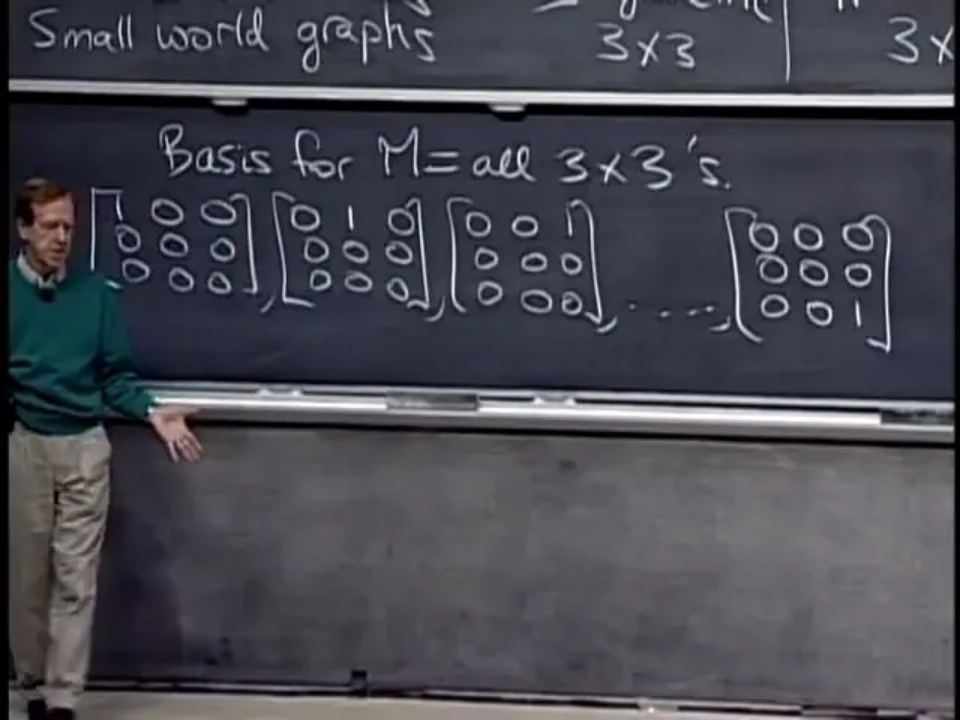 Small world graphs 3x3
Basis for M = all 3x3's.
[1 0 0 [0 1 0 [0 0 1 [0 0 0
0 0 0 0 0 0 0 0 0 0 0 0
0 0 0], 0 0 0], 0 0 0], ....., 0 0 1]